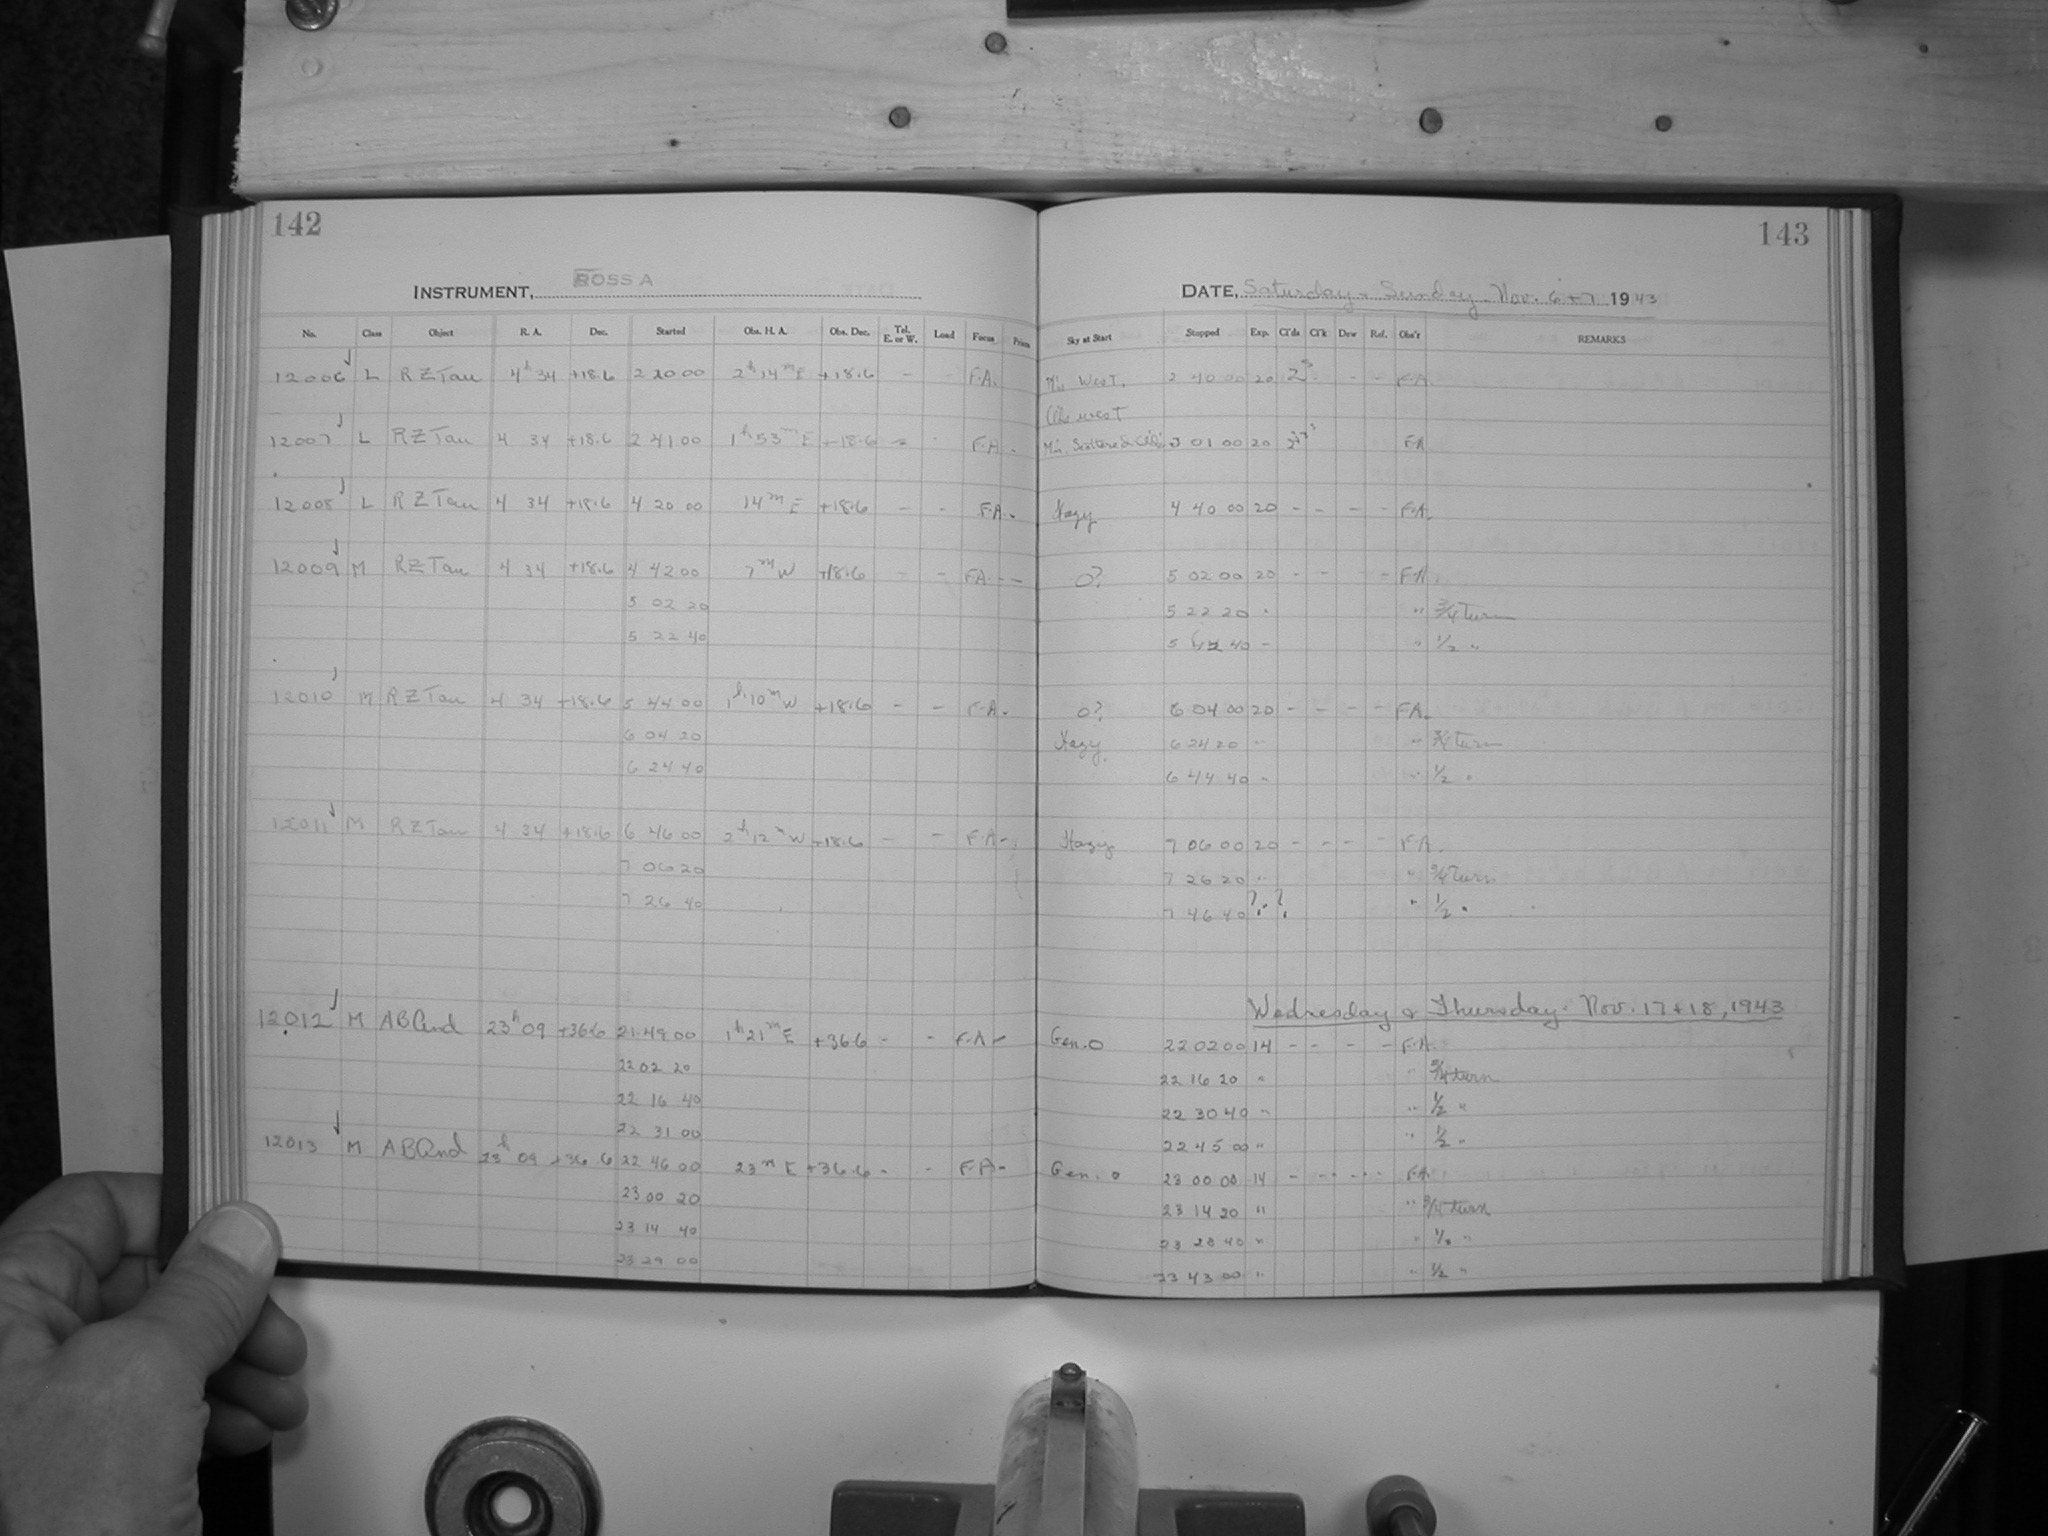 142
INSTRUMENT, ROSS A
No. Class Object R. A. Dec. Started Obs. H. A. Obs. Dec. Tel. E. or W. Load Focus Prism
12006 L RZ Tau 4h 34 +18.6 2 20 00 2h 14m E +18.6 - - F.A.
12007 L RZ Tau 4 34 +18.6 2 41 00 1h 53m E +18.6 - - F.A. -
12008 L RZ Tau 4 34 +18.6 4 20 00 14m E +18.6 - - F.A. -
12009 M RZ Tau 4 34 +18.6 4 42 00 7m W +18.6 - - F.A. - -
5 02 20
5 22 40
12010 M RZ Tau 4 34 +18.6 5 44 00 1h 10m W +18.6 - - F.A. -
6 04 20
6 24 40
12011 M RZ Tau 4 34 +18.6 6 46 00 2h 12m W +18.6 - - F.A. -
7 06 20
7 26 40
12012 M AB And 23h 09 +36.6 21 48 00 1h 21m E +36.6 - - F.A. -
22 02 20
22 16 40
22 31 00
12013 M AB And 23h 09 +36.6 22 46 00 23m E +36.6 - - F.A. -
23 00 20
23 14 40
23 29 00
143
DATE, Saturday & Sunday Nov. 6 + 7 1943
Sky at Start Stopped Exp. Cl'ds Cl'k Dew Ref. Obs'r REMARKS
West. 2 40 00 20 - - F.A.
west
Scattered 3 01 00 20 F.A.
Hazy 4 40 00 20 - - - - F.A.
0? 5 02 00 20 - - - F.A.
5 22 20 " " 3/4 turn
5 42 40 " " 1/2 "
0? 6 04 00 20 - - - - F.A.
Hazy 6 24 20 " " 3/4 turn
6 44 40 " " 1/2 "
Hazy 7 06 00 20 - - - - F.A.
7 26 20 " " 3/4 turn
7 46 40 ? " ? " 1/2 "
Wednesday & Thursday Nov. 17 + 18, 1943
Gen. 0 22 02 00 14 - - - - F.A.
22 16 20 " " 3/4 turn
22 30 40 " " 1/2 "
22 45 00 " " 1/2 "
Gen. 0 23 00 00 14 - - - - F.A.
23 14 20 " " 3/4 turn
23 28 40 " " 1/2 "
23 43 00 " " 1/2 "